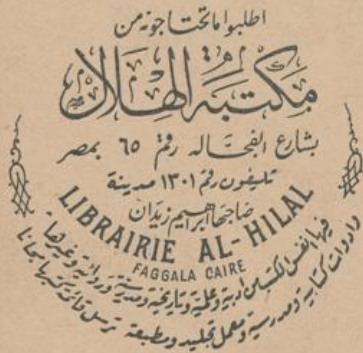 اطلبوا ماتحتاجونه من
مكتبة الهلال
بشارع الفجاله رقم ٦٥ بمصر
تليفون رقم ١٣٠١ مدينة
صاحبها ابراهيم زيدان
LIBRAIRIE AL-HILAL
FAGGALA CAIRE
فيها انفس الكتب من ادبية وعلمية وتاريخية ومدرسية وروائية وغيرها
وادوات كتابية ومدرسية ومعمل تجليد ومطبعة ترسل قائمة كتبها مجانا